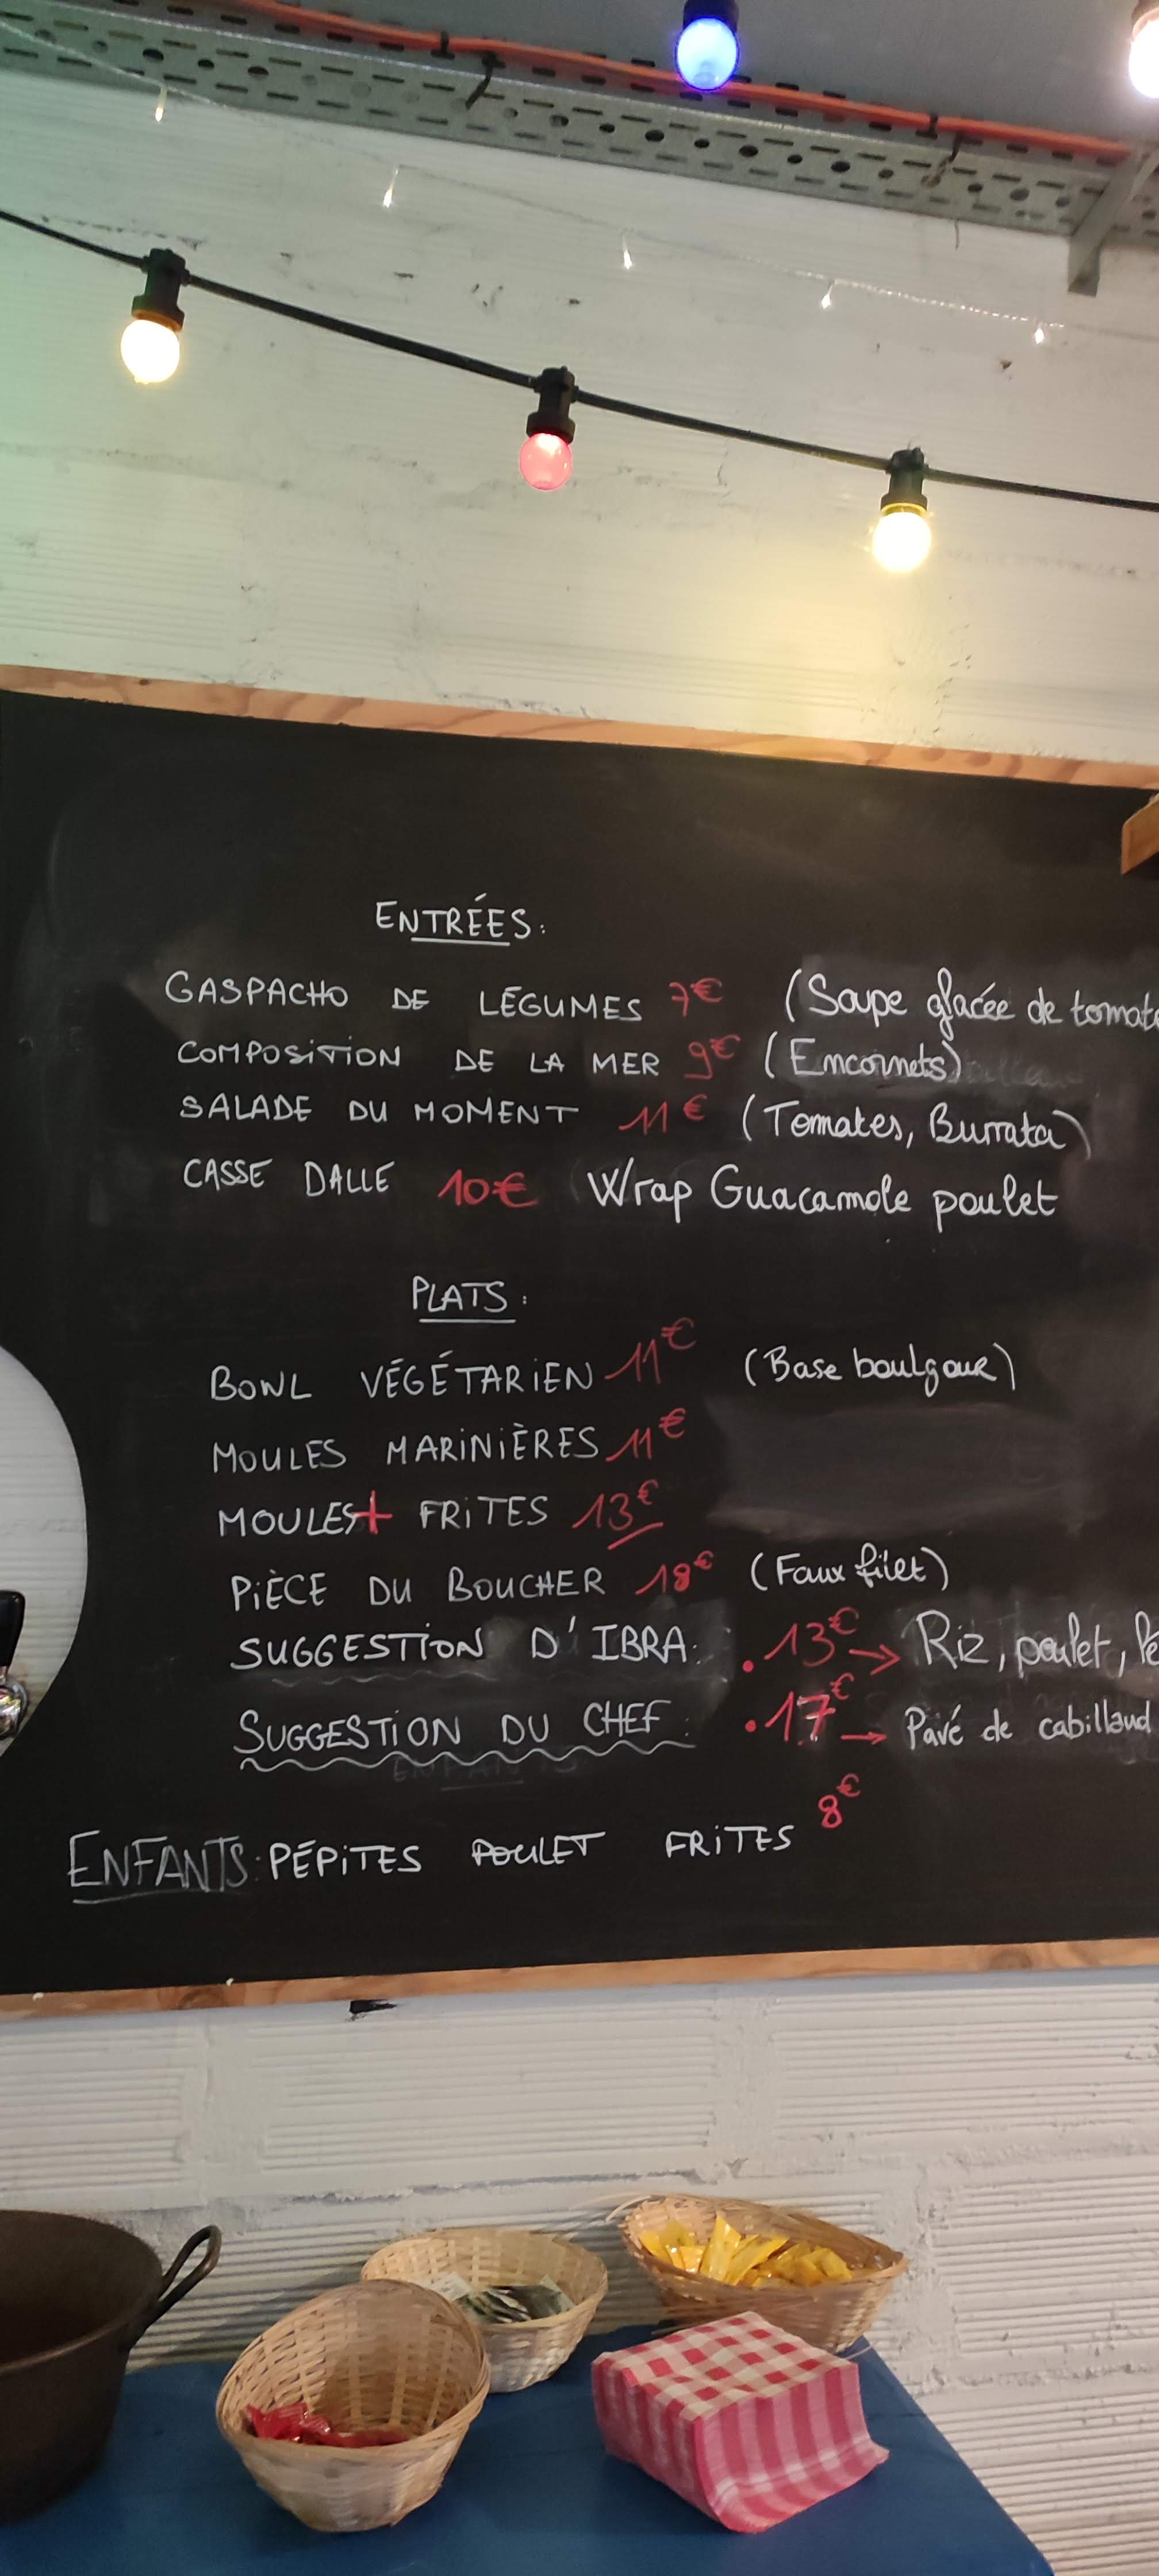 ENTRÉES:
GASPACHO DE LÉGUMES 7€ (Soupe glacée de tomate
COMPOSITION DE LA MER 9€ (Encornets)
SALADE DU MOMENT 11€ (Tomates, Burrata)
CASSE DALLE 10€ Wrap Guacamole poulet
PLATS:
BOWL VÉGÉTARIEN 11€ (Base boulgour)
MOULES MARINIÈRES 11€
MOULES+ FRITES 13€
PIÈCE DU BOUCHER 18€ (Faux filet)
SUGGESTION D'IBRA: . 13€ → Riz, poulet,
SUGGESTION DU CHEF: . 17€ → Pavé de cabillaud
ENFANTS: PÉPITES POULET FRITES 8€